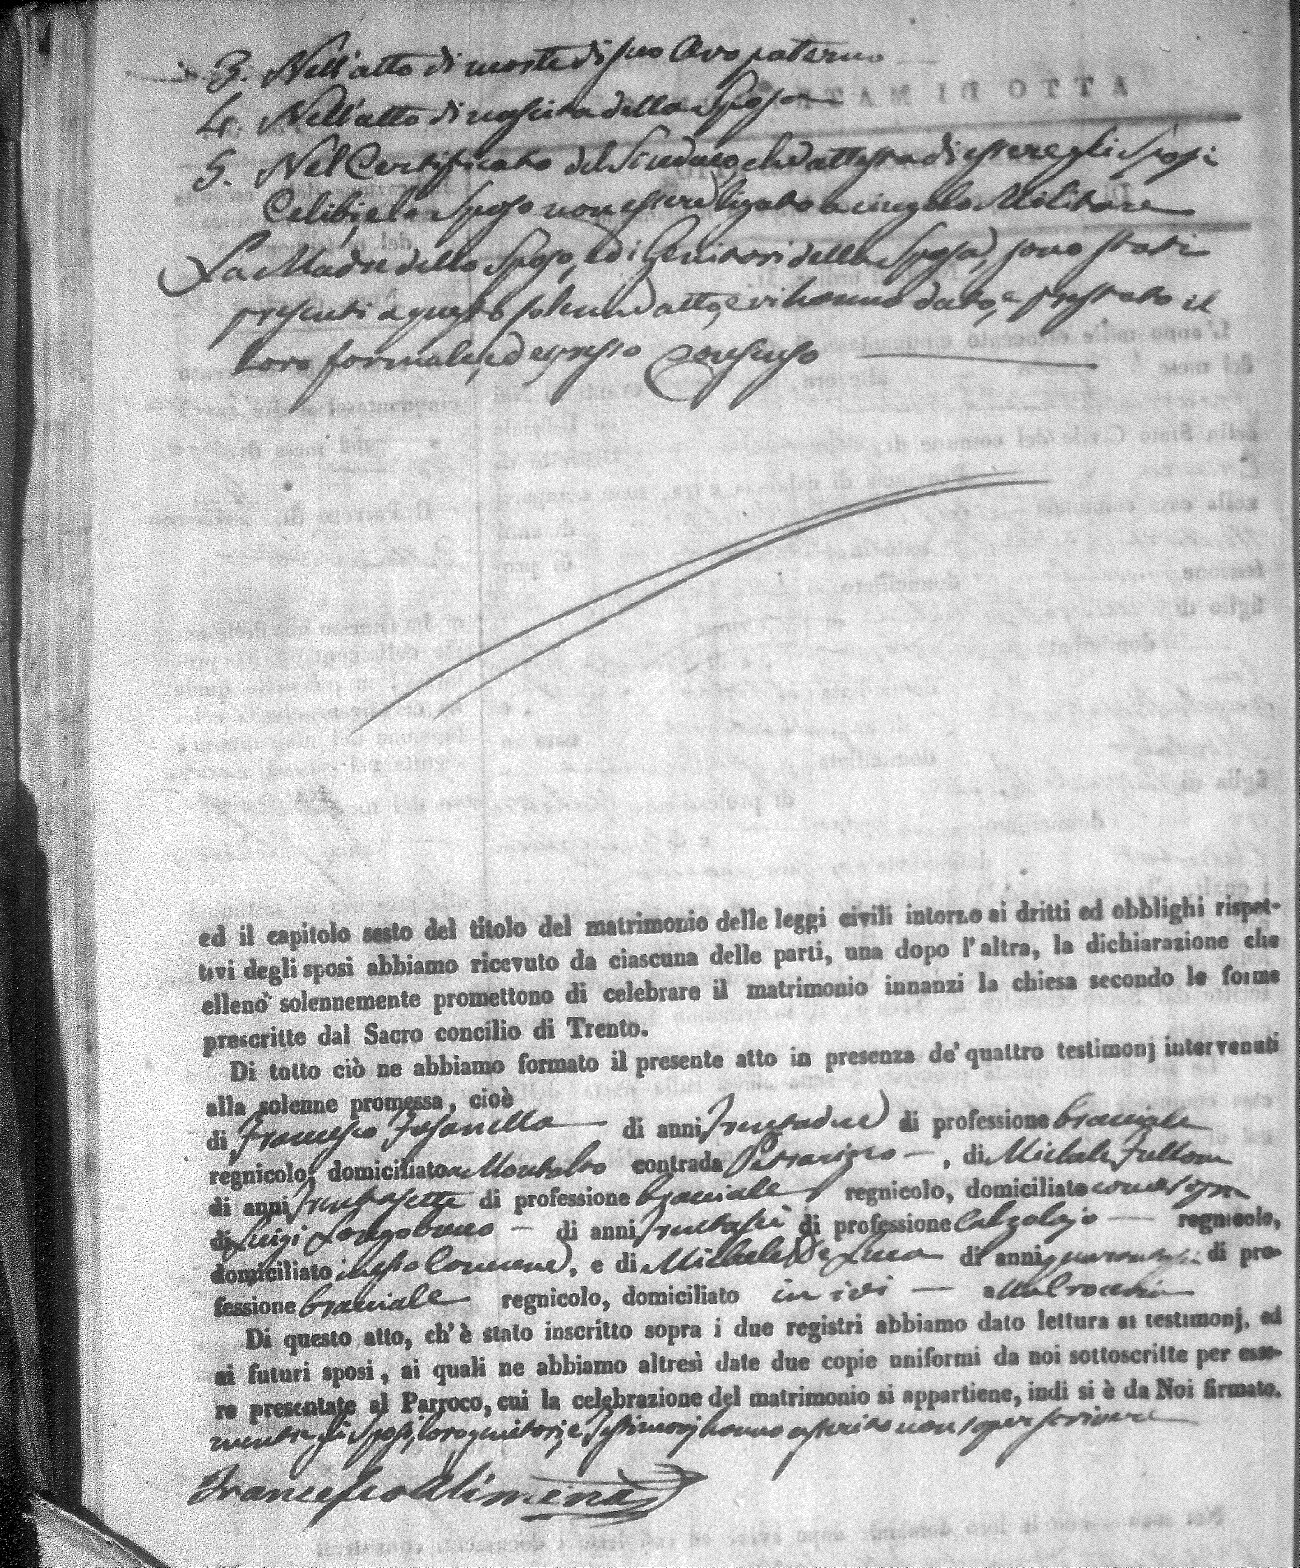 3. Nell'atto di morte di suo Avo paterno
4. Nell'atto di nascita della Sposa
5. Nel Certificato del Sindaco che attesta di essere gli Sposi
Celibi, e lo Sposo non essere ligato a cingolo Militare
La Madre dello Sposo, ed i Genitori della Sposa, sono stati
presenti a questo solenne atto, e vi hanno dato, e prestato il
loro formale, ed espresso Consenso
ed il capitolo sesto del titolo del matrimonio delle leggi civili intorno ai dritti ed obblighi rispet-
tivi degli sposi abbiamo ricevuto da ciascuna delle parti, una dopo l'altra, la dichiarazione che
elleno solennemente promettono di celebrare il matrimonio innanzi la chiesa secondo le forme
prescritte dal Sacro concilio di Trento.
Di tutto ciò ne abbiamo formato il presente atto in presenza de' quattro testimonj intervenuti
alla solenne promessa, cioè
di Francesco Fusanella di anni trentadue di professione bracciale
regnicolo, domiciliato a Montalto contrada , di Michele
di anni trentasette di professione bracciale regnicolo, domiciliato come sopra
di Luigi Longobuco di anni trentasei di professione Calzolajo regnicolo,
domiciliato in esso Comune, e di Michele De Luca di anni di pro-
fessione bracciale regnicolo, domiciliato in ivi
Di questo atto, ch'è stato inscritto sopra i due registri abbiamo dato lettura ai testimonj, ed
ai futuri sposi, ai quali ne abbiamo altresì date due copie uniformi da noi sottoscritte per esse-
re presentate al Parroco, cui la celebrazione del matrimonio si appartiene, indi si è da Noi firmato.
mentre gli Sposi, loro genitori, e Testimonj hanno asserito non saper scrivere
Francesco Alimena